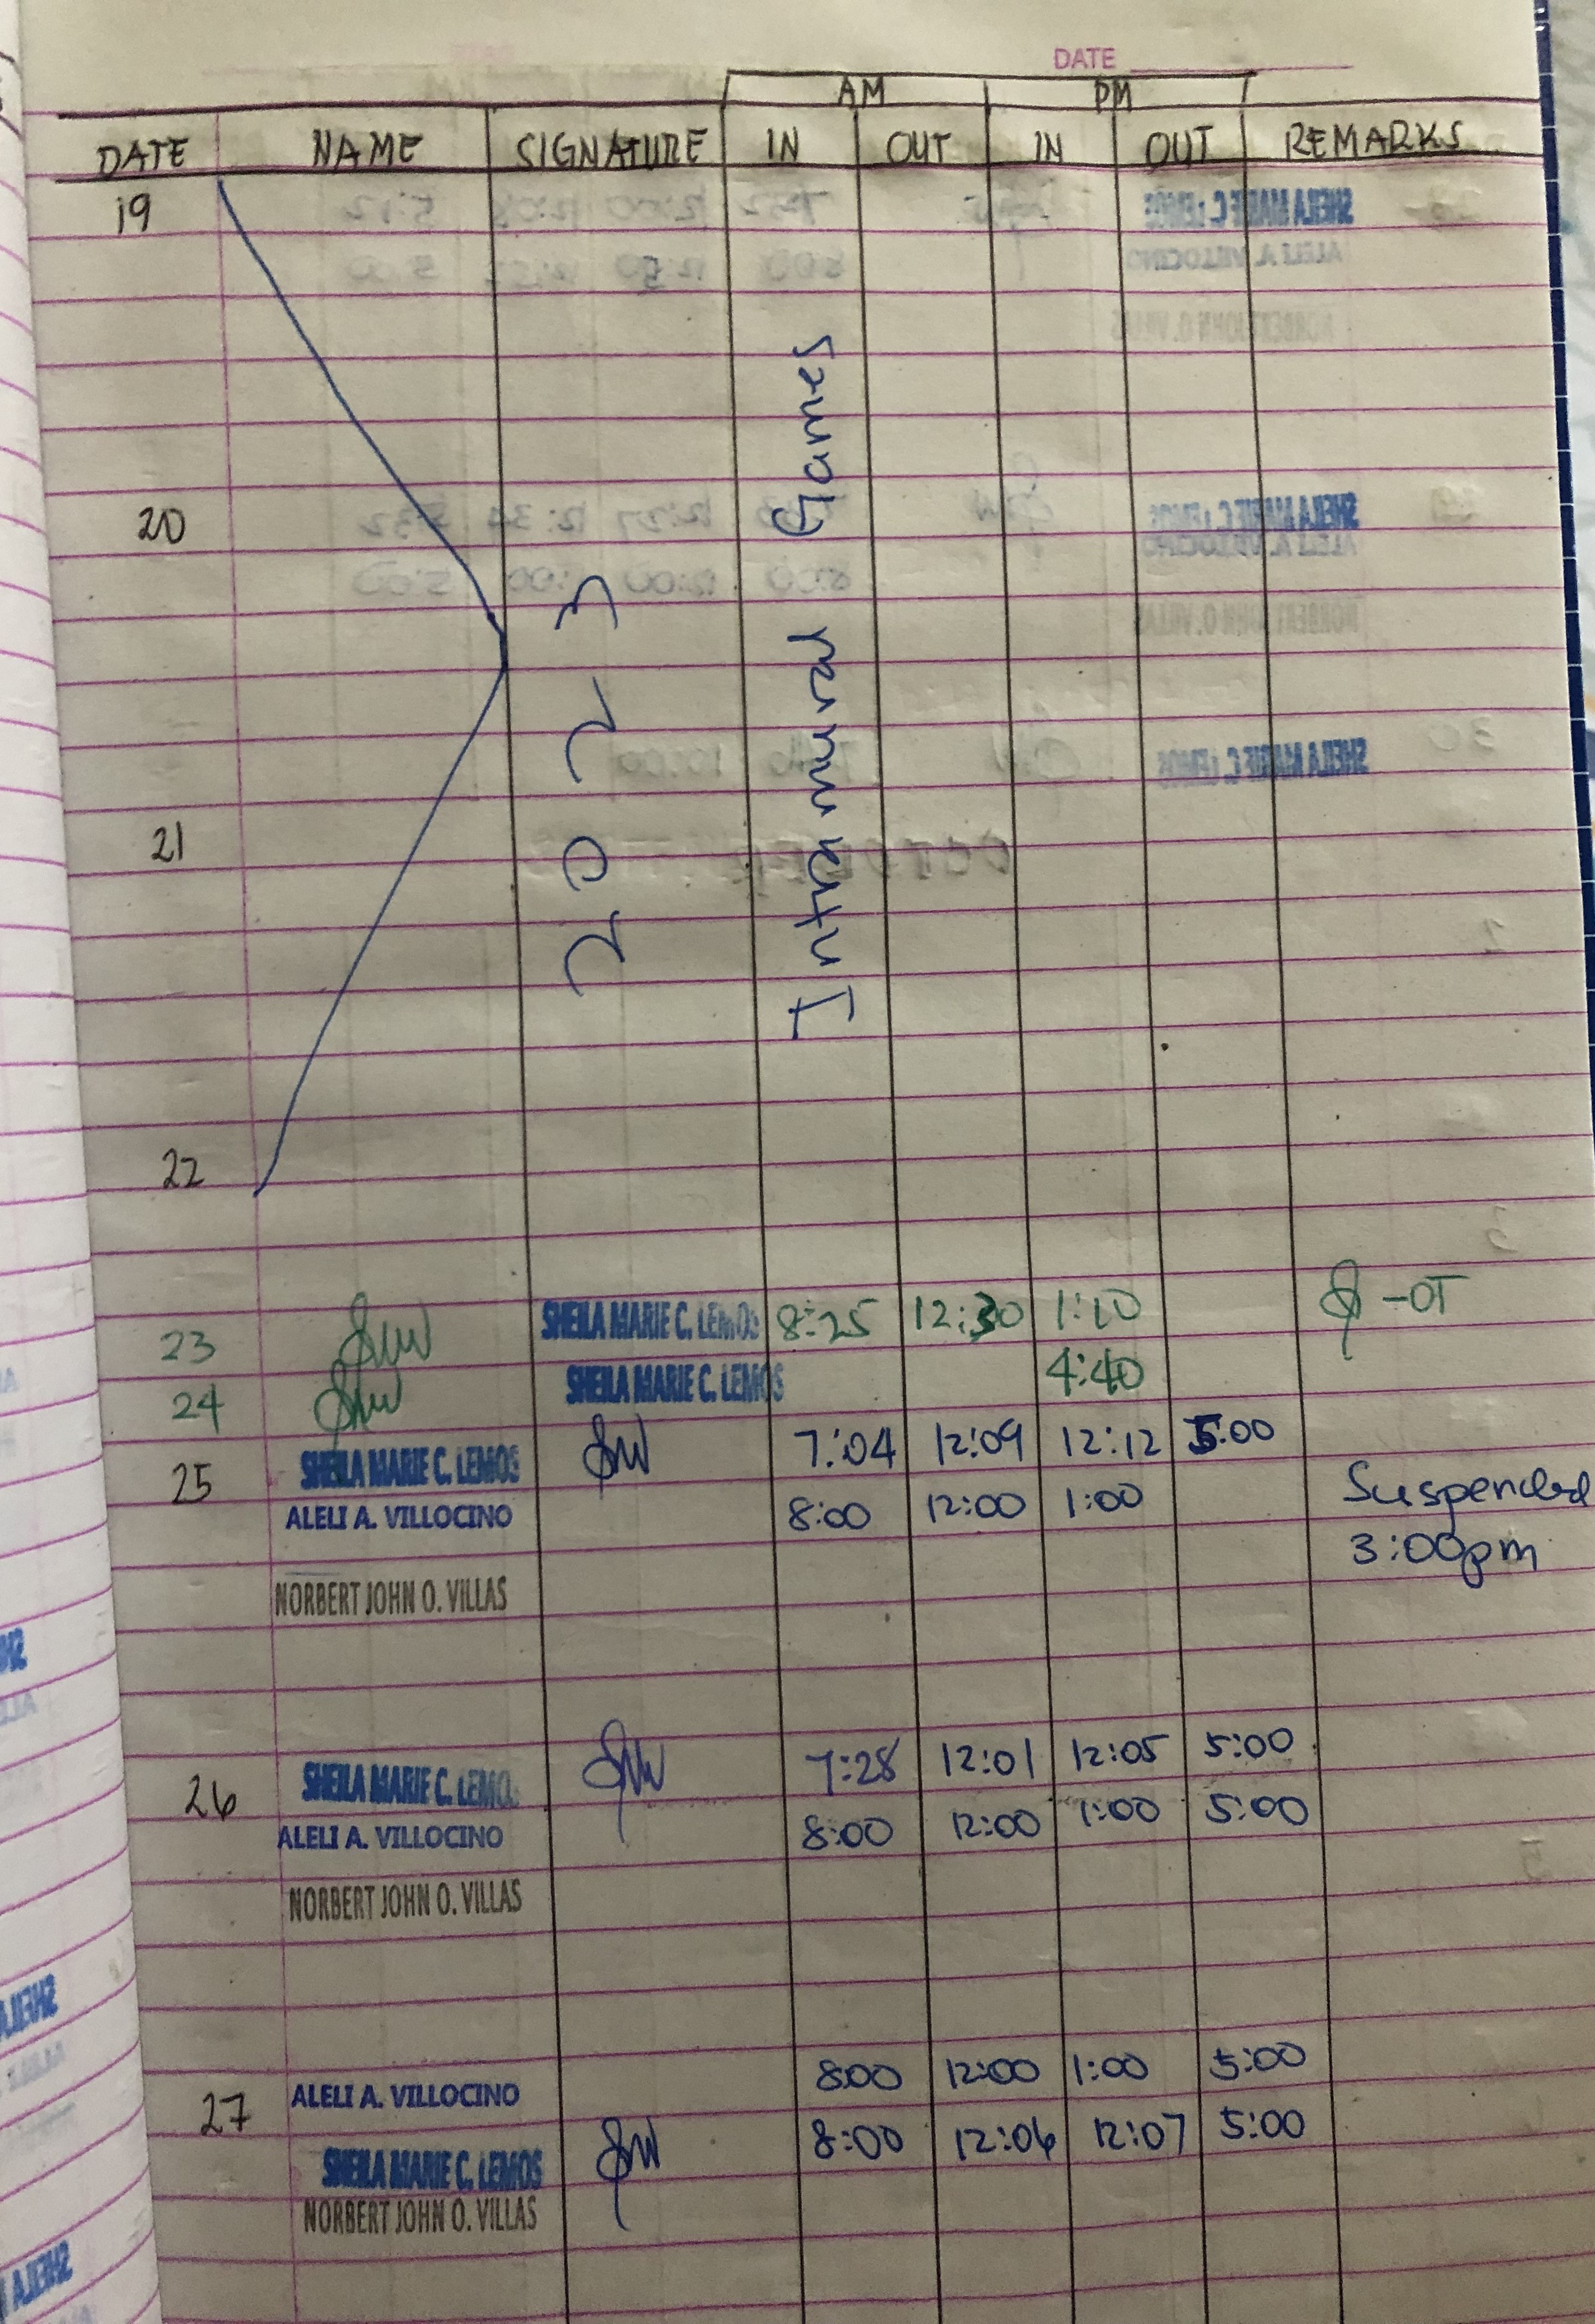 DATE
AM PM
DATE NAME SIGNATURE IN OUT IN OUT REMARKS
19
20
21
22
Intramural Games
2023
23 SHEILA MARIE C. LEMOS 8:25 12:30 1:10 -OT
24 SHEILA MARIE C. LEMOS 4:40
25 SHEILA MARIE C. LEMOS 7:04 12:09 12:12 5:00
ALELI A. VILLOCINO 8:00 12:00 1:00 Suspended
3:00pm
NORBERT JOHN O. VILLAS
26 SHEILA MARIE C. LEMOS 7:28 12:01 12:05 5:00
ALELI A. VILLOCINO 8:00 12:00 1:00 5:00
NORBERT JOHN O. VILLAS
27 ALELI A. VILLOCINO 8:00 12:00 1:00 5:00
SHEILA MARIE C. LEMOS 8:00 12:06 12:07 5:00
NORBERT JOHN O. VILLAS